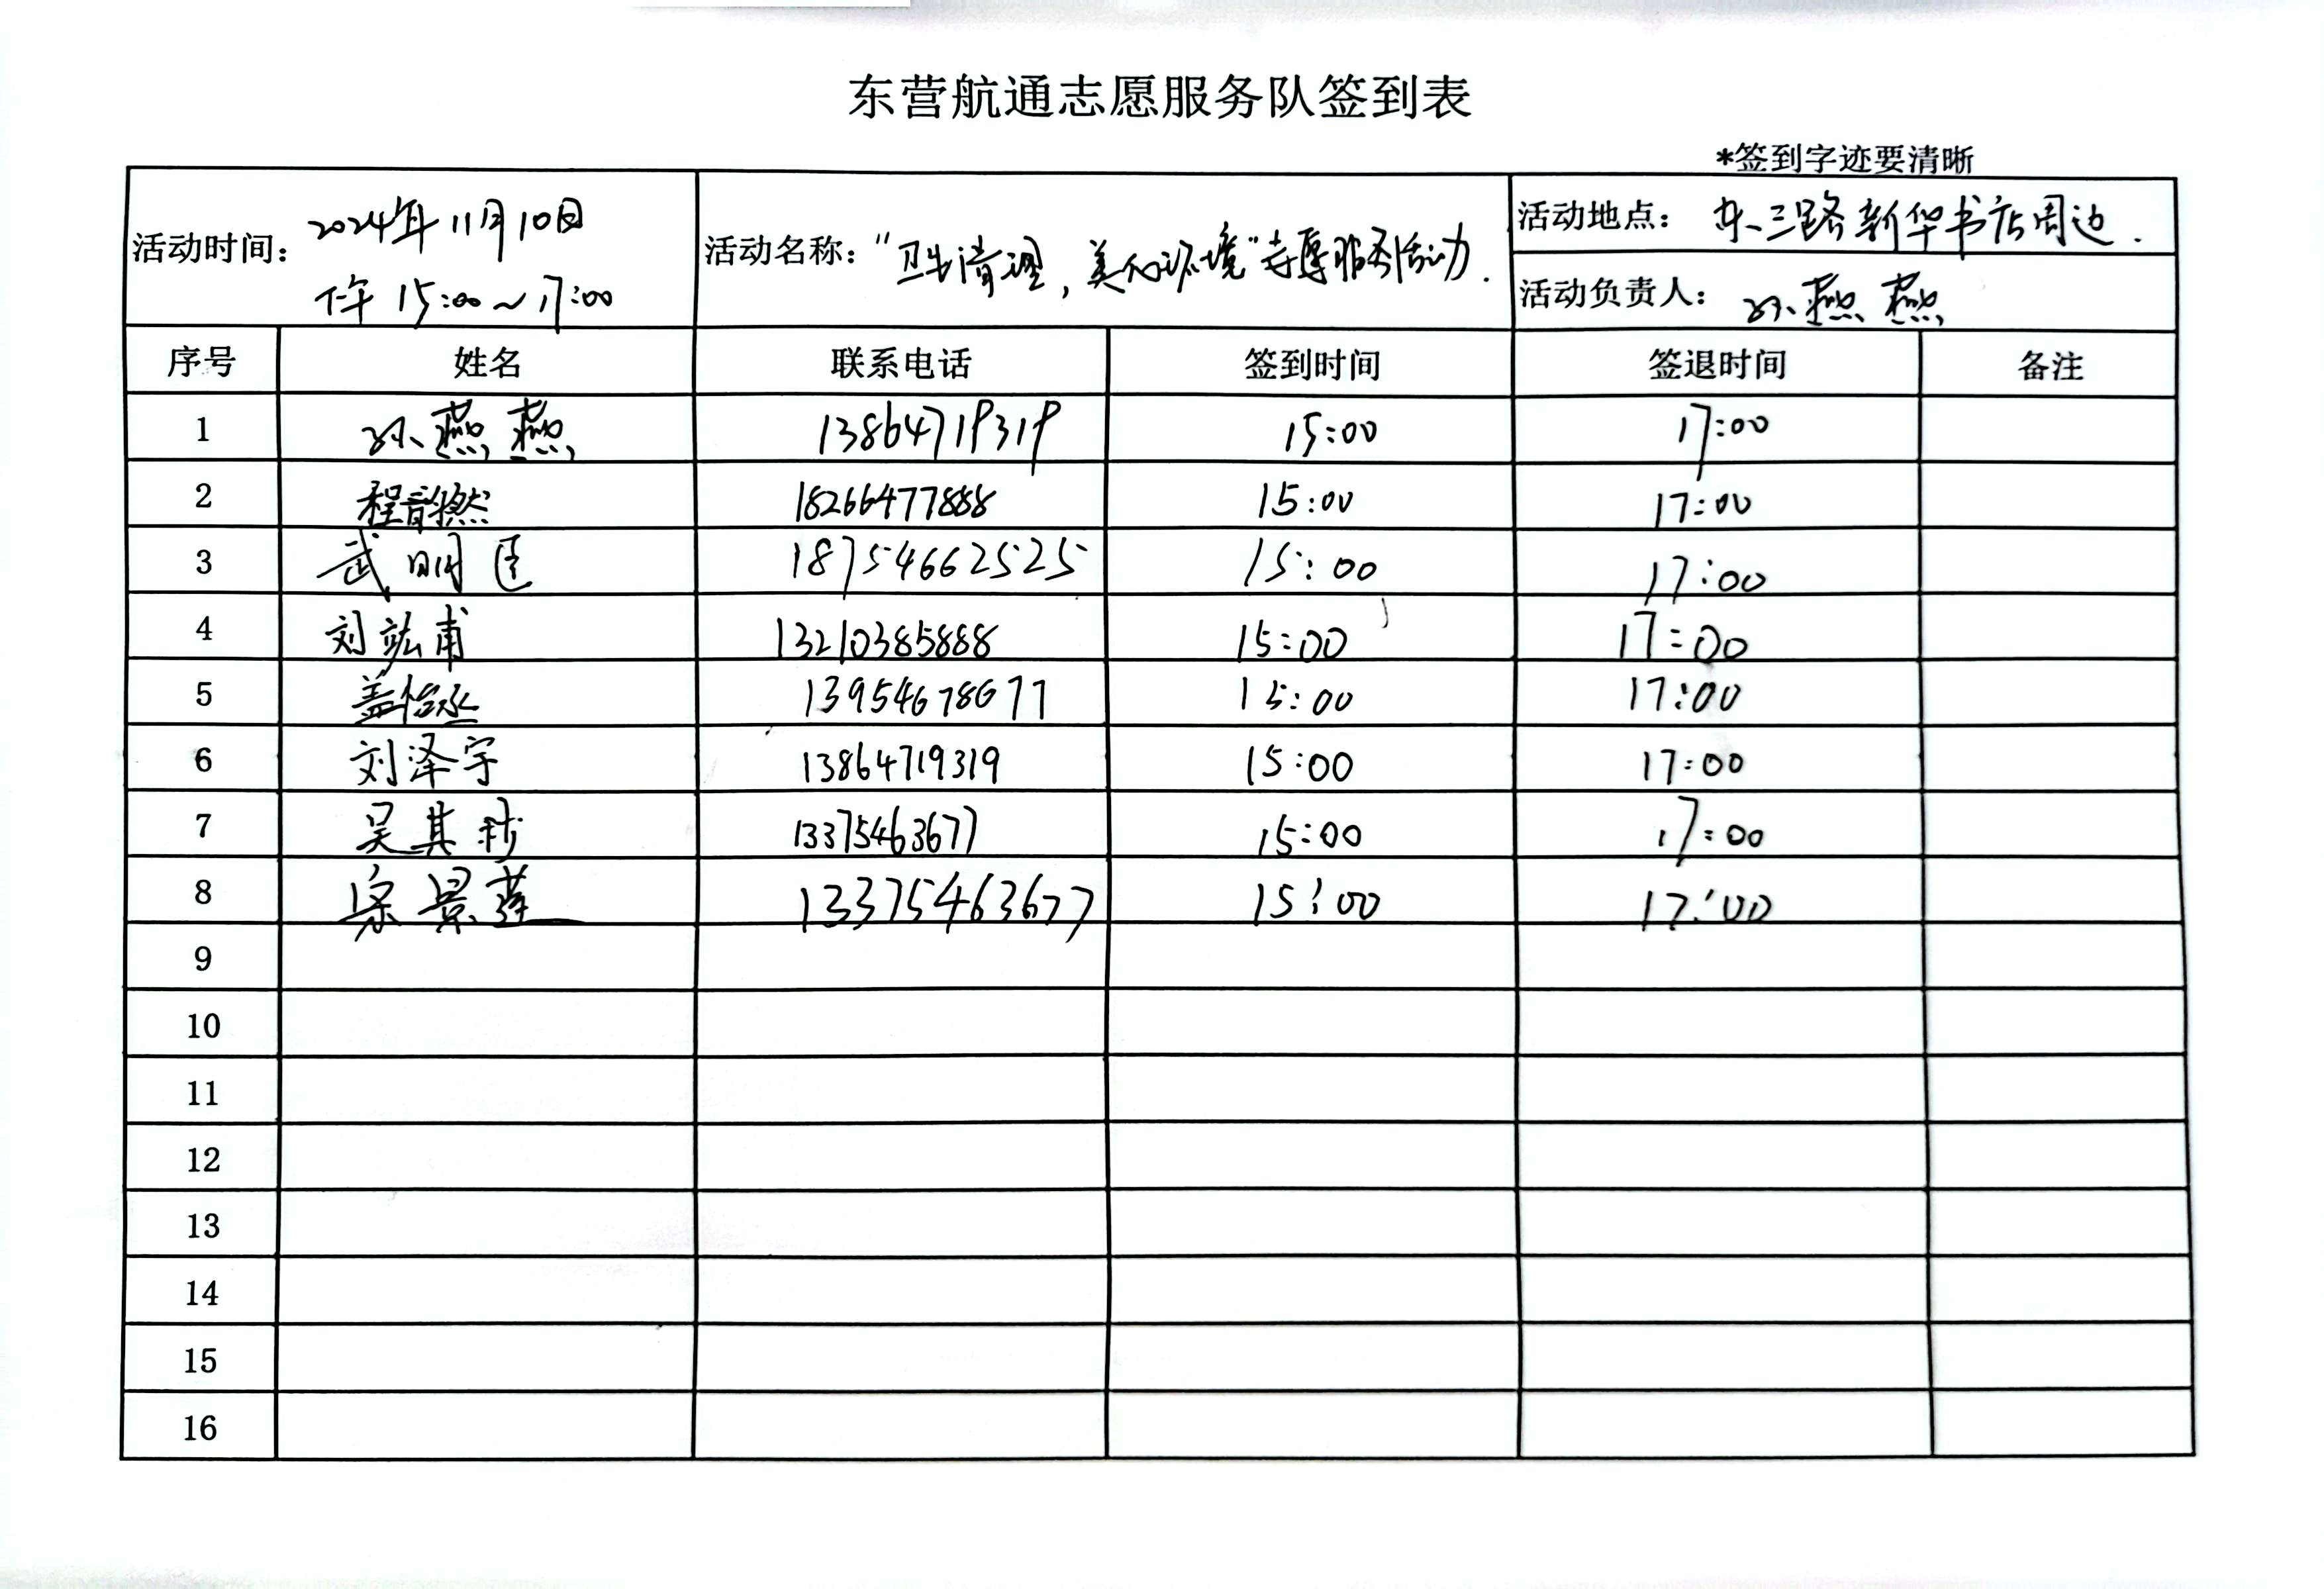 东营航通志愿服务队签到表
*签到字迹要清晰
活动时间： 2024年11月10日
下午 15:00～17:00
活动名称： “卫生清理，美化环境”志愿服务活动.
活动地点： 东三路新华书店周边.
活动负责人： 孙燕燕
序号 姓名 联系电话 签到时间 签退时间 备注
1 孙燕燕 13864719319 15:00 17:00
2 程韵燃 18266477888 15:00 17:00
3 武明臣 18754662525 15:00 17:00
4 刘竑甫 13210385888 15:00 17:00
5 盖怡丞 13954678677 15:00 17:00
6 刘泽宇 13864719319 15:00 17:00
7 吴其 13375463677 15:00 17:00
8 宗景莲 13375463677 15:00 17:00
9
10
11
12
13
14
15
16